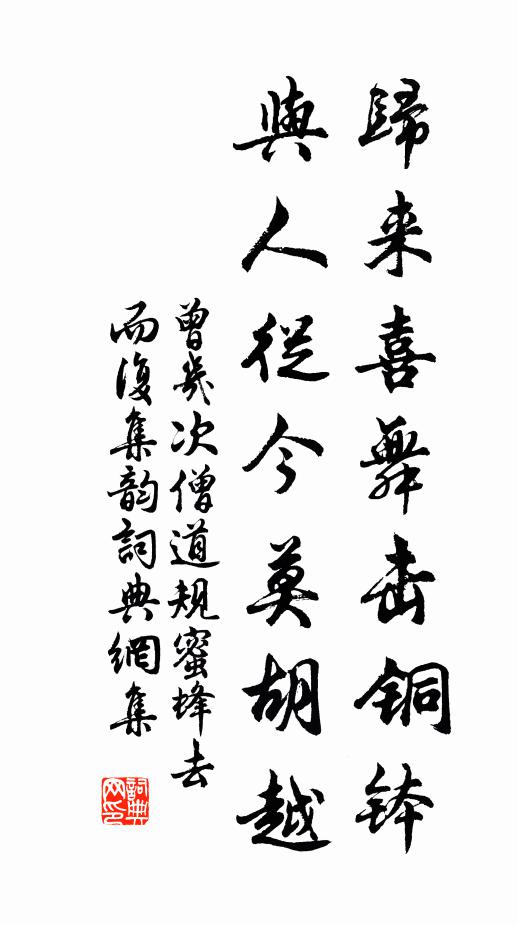 歸来喜舞击铜钵
與人從今莫胡越
曾幾次僧道規蜜蜂去
而復集韵詞典網集
詞典網印